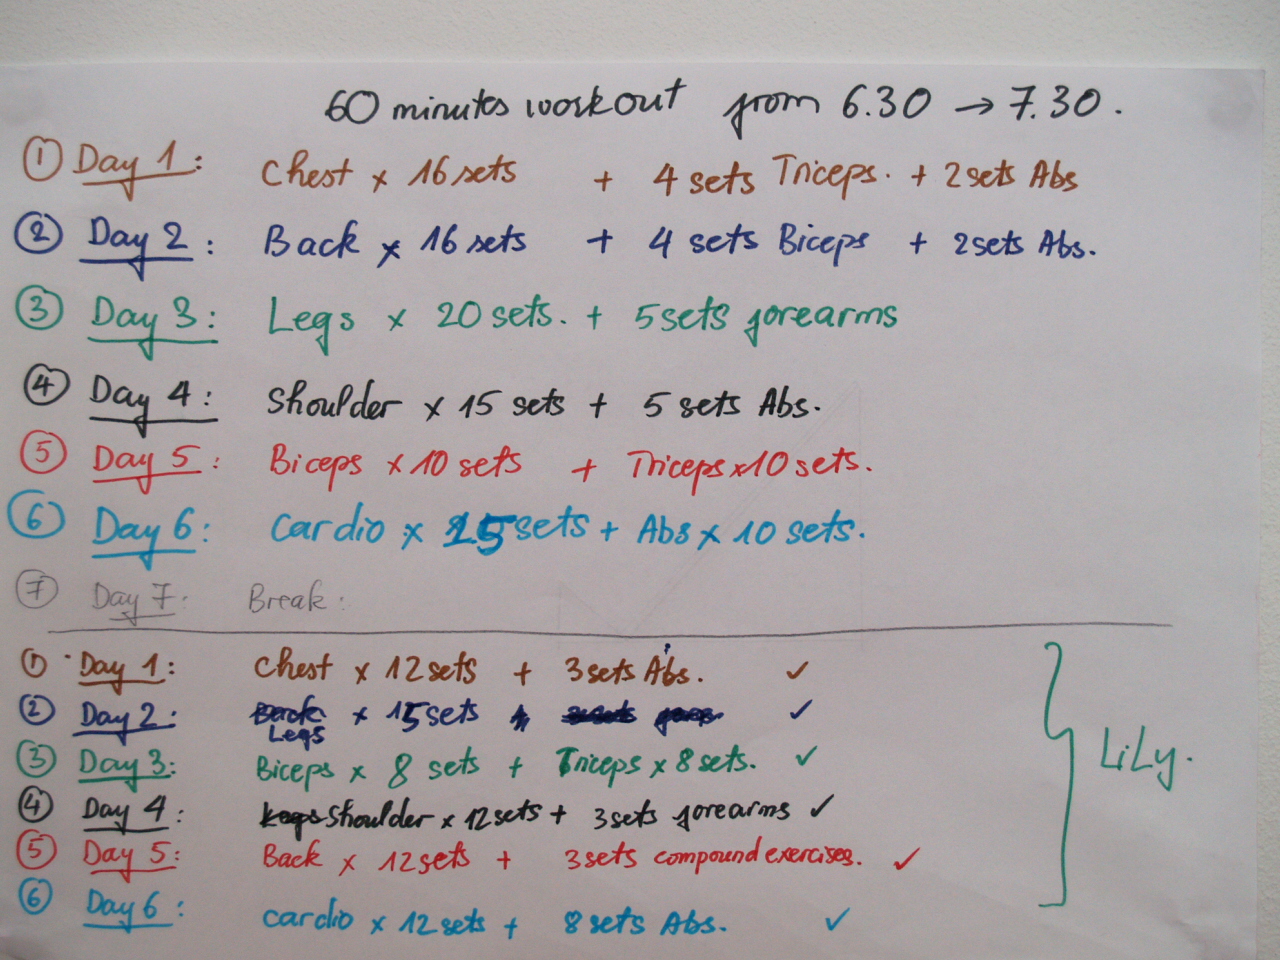 60 minutes workout from 6.30 → 7.30.
① Day 1: Chest x 16 sets + 4 sets Triceps. + 2 sets Abs
② Day 2: Back x 16 sets + 4 sets Biceps + 2 sets Abs.
③ Day 3: Legs x 20 sets. + 5 sets forearms
④ Day 4: Shoulder x 15 sets + 5 sets Abs.
⑤ Day 5: Biceps x 10 sets + Triceps x 10 sets.
⑥ Day 6: Cardio x 15 sets + Abs x 10 sets.
⑦ Day 7: Break.
① Day 1: Chest x 12 sets + 3 sets Abs. ✓
② Day 2: Back x 15 sets ✓
Legs
③ Day 3: Biceps x 8 sets + Triceps x 8 sets. ✓
LiLy.
④ Day 4: Legs Shoulder x 12 sets + 3 sets forearms ✓
⑤ Day 5: Back x 12 sets + 3 sets compound exercises. ✓
⑥ Day 6: Cardio x 12 sets + 8 sets Abs. ✓